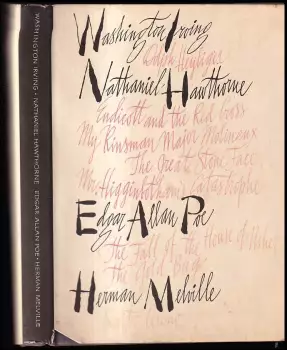 WASHINGTON IRVING · NATHANIEL HAWTHORNE EDGAR ALLAN POE · HERMAN MELVILLE
Washington Irving
Nathaniel Hawthorne
Endicott and the Red Cross
My Kinsman, Major Molineux
The Great Stone Face
Mr. Higginbotham's Catastrophe
Edgar Allan Poe
The Fall of the House of
The Gold Bug
Herman Melville